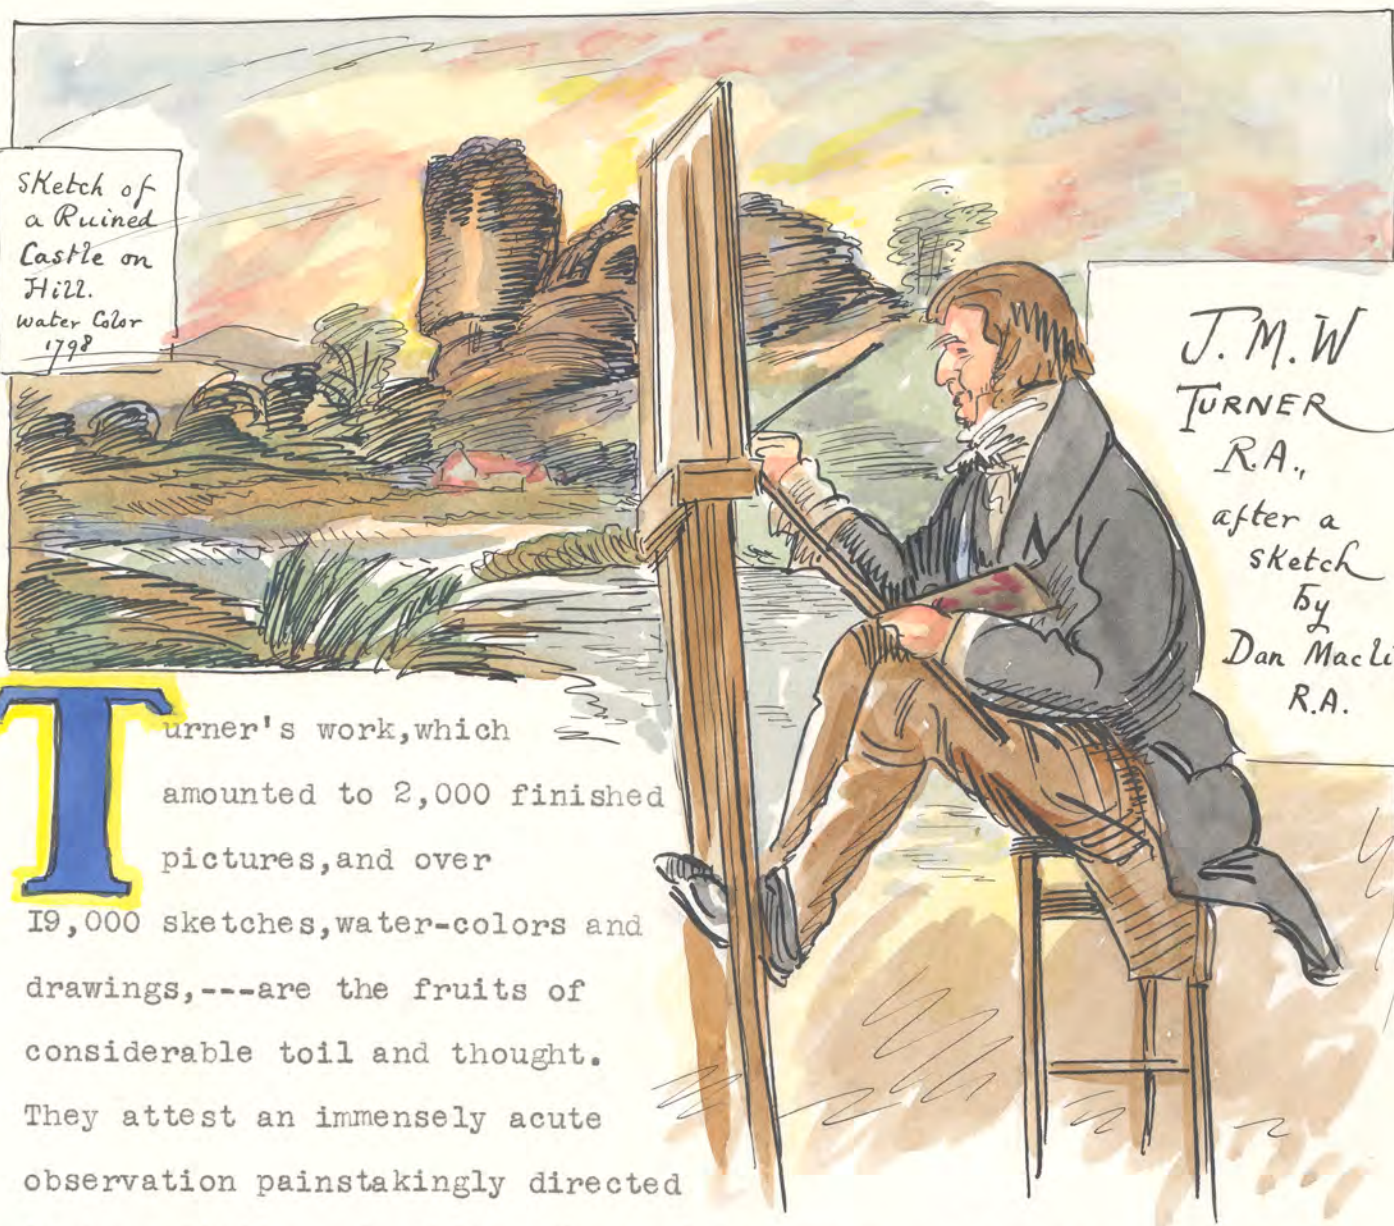 Sketch of
a Ruined
Castle on
Hill.
Water Color
1798
J.M.W
TURNER
R.A.,
after a
sketch
by
Dan Macli
R.A.
Turner's work,which
amounted to 2,000 finished
pictures,and over
I9,000 sketches,water-colors and
drawings,---are the fruits of
considerable toil and thought.
They attest an immensely acute
observation painstakingly directed